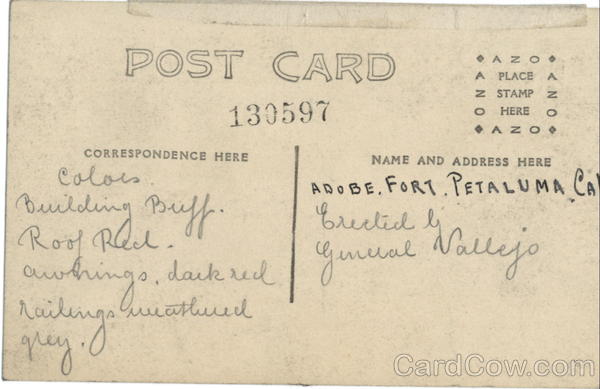 POST CARD
130597
AZO
A PLACE A
Z STAMP Z
O HERE O
AZO
CORRESPONDENCE HERE
NAME AND ADDRESS HERE
Colors.
Building Buff.
Roof Red.
awnings, dark red
railings weathered
grey.
ADOBE. FORT. PETALUMA. Cal
Erected by
General Vallejo
CardCow.com